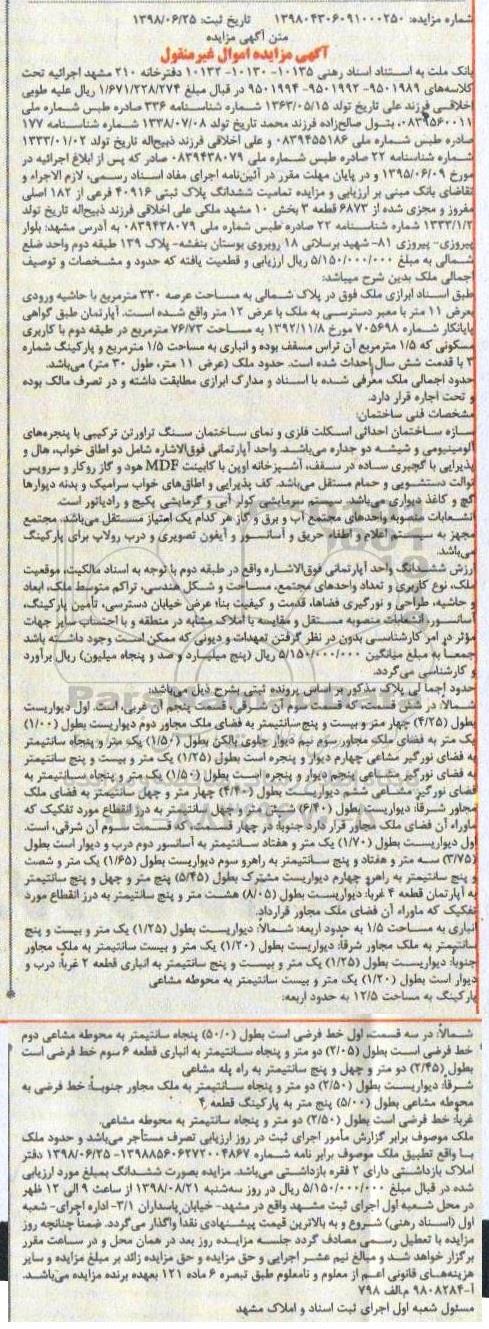 شماره مزایده: ۱۳۹۸۰۴۳۰۶۰۹۱۰۰۰۲۵۰ تاریخ ثبت: ۱۳۹۸/۰۶/۲۵
متن آگهی مزایده
آگهی مزایده اموال غیرمنقول
بانک ملت به استناد اسناد رهنی ۱۰۱۳۵- ۱۰۱۳۰- ۱۰۱۳۲ دفترخانه ۲۱۰ مشهد اجرائیه تحت
کلاسه‌های ۹۵۰۱۹۸۹- ۹۵۰۱۹۹۱- ۹۵۰۱۹۹۴ در قبال مبلغ ۱/۶۷۱/۲۲۸/۲۷۴ ریال علیه طوبی
اخلاقی فرزند علی تاریخ تولد ۱۳۶۳/۰۵/۱۵ شماره شناسنامه ۳۳۶ صادره طبس شماره ملی
۰۸۳۹۵۶۰۰۱۱، بتول صالح‌زاده فرزند محمد تاریخ تولد ۱۳۳۸/۰۷/۰۸ شماره شناسنامه ۱۷۷
صادره طبس شماره ملی ۰۸۳۹۴۵۵۱۸۶ و علی اخلاقی فرزند ذبیح‌اله تاریخ تولد ۱۳۳۳/۰۱/۰۲
شماره شناسنامه ۲۲ صادره طبس شماره ملی ۰۸۳۹۴۳۸۰۷۹ صادر که پس از ابلاغ اجرائیه در
مورخ ۱۳۹۵/۰۶/۰۹ و در پایان مهلت مقرر در آئین‌نامه اجرای مفاد اسناد رسمی، لازم الاجراء و
تقاضای بانک مبنی بر ارزیابی و مزایده تمامیت ششدانگ پلاک ثبتی ۴۰۹۱۶ فرعی از ۱۸۲ اصلی
مفروز و مجزی شده از ۶۸۷۳ قطعه ۳ بخش ۱۰ مشهد ملکی علی اخلاقی فرزند ذبیح‌اله تاریخ تولد
۱۳۳۳/۱/۲ شماره شناسنامه ۲۲ صادره طبس شماره ملی ۰۸۳۹۴۳۸۰۷۹ به آدرس مشهد: بلوار
پیروزی- پیروزی ۸۱- شهید برسلانی ۱۸ روبروی بوستان بنفشه- پلاک ۱۳۹ طبقه دوم واحد ضلع
شمالی به مبلغ ۵/۱۵۰/۰۰۰/۰۰۰ ریال ارزیابی و قطعیت یافته که حدود و مشخصات و توصیف
اجمالی ملک بدین شرح میباشد:
طبق اسناد ابرازی ملک فوق در پلاک شمالی به مساحت عرصه ۳۳۰ مترمربع با حاشیه ورودی
بعرض ۱۱ متر با معبر دسترسی به ملک با عرض ۱۲ متر واقع شده است. آپارتمان طبق گواهی
پایانکار شماره ۷۰۵۶۹۸ مورخ ۱۳۹۲/۱۱/۸ به مساحت ۷۶/۷۳ مترمربع در طبقه دوم با کاربری
مسکونی که ۱/۵ مترمربع آن تراس مسقف بوده و انباری به مساحت ۱/۵ مترمربع و پارکینگ شماره
۳ با قدمت شش سال احداث شده است. حدود ملک (عرض ۱۱ متر، طول ۳۰ متر) می‌باشد.
حدود اجمالی ملک معرفی شده با اسناد و مدارک ابرازی مطابقت داشته و در تصرف مالک بوده
و تحت اجاره قرار دارد.
مشخصات فنی ساختمان:
سازه ساختمان احداثی اسکلت فلزی و نمای ساختمان سنگ تراورتن ترکیبی با پنجره‌های
آلومینیومی و شیشه دو جداره می‌باشد. واحد آپارتمانی فوق‌الاشاره شامل دو اطاق خواب، هال و
پذیرایی با گچبری ساده در سقف، آشپزخانه اوپن با کابینت MDF هود و گاز روکار و سرویس
توالت دستشویی و حمام مستقل می‌باشد. کف پذیرایی و اطاق‌های خواب سرامیک و بدنه دیوارها
گچ و کاغذ دیواری می‌باشد. سیستم سرمایشی کولر آبی و گرمایشی پکیج و رادیاتور است.
انشعابات منصوبه واحدهای مجتمع آب و برق و گاز هر کدام یک امتیاز مستقل می‌باشد. مجتمع
مجهز به سیستم اعلام و اطفاء حریق و آسانسور و آیفون تصویری و درب رولاپ برای پارکینگ
می‌باشد.
ارزش ششدانگ واحد آپارتمانی فوق‌الاشاره واقع در طبقه دوم با توجه به اسناد مالکیت، موقعیت
ملک، نوع کاربری و تعداد واحدهای مجتمع، مساحت و شکل هندسی، تراکم متوسط ملک، ابعاد
و حاشیه، طراحی و نورگیری فضاها، قدمت و کیفیت بنا، عرض خیابان دسترسی، تأمین پارکینگ،
آسانسور، انشعابات منصوبه مستقل و مقایسه با املاک مشابه در منطقه و با احتساب سایر جهات
مؤثر در امر کارشناسی بدون در نظر گرفتن تعهدات و دیونی که ممکن است وجود داشته باشد
جمعاً به مبلغ میانگین ۵/۱۵۰/۰۰۰/۰۰۰ ریال (پنج میلیارد و صد و پنجاه میلیون) ریال برآورد
و کارشناسی می‌گردد.
حدود اجمالی پلاک مذکور بر اساس پرونده ثبتی بشرح ذیل می‌باشد:
شمالاً: در شش قسمت، که قسمت سوم آن شرقی، قسمت پنجم آن غربی، است. اول دیواریست
بطول (۴/۲۵) چهار متر و بیست و پنج سانتیمتر به فضای ملک مجاور دوم دیواریست بطول (۱/۰۰)
یک متر به فضای ملک مجاور سوم نیم دیوار جلوی بالکن بطول (۱/۵۰) یک متر و پنجاه سانتیمتر
به فضای نورگیر مشاعی چهارم دیوار و پنجره است بطول (۱/۲۵) یک متر و بیست و پنج سانتیمتر
به فضای نورگیر مشاعی پنجم دیوار و پنجره است بطول (۱/۵۰) یک متر و پنجاه سانتیمتر به
فضای نورگیر مشاعی ششم دیواریست بطول (۴/۴۰) چهار متر و چهل سانتیمتر به فضای ملک
مجاور شرقاً: دیواریست بطول (۶/۴۰) شش متر و چهل سانتیمتر به درز انقطاع مورد تفکیک که
ماوراء آن فضای ملک مجاور قرار دارد جنوباً: در چهار قسمت، که قسمت سوم آن شرقی، است.
اول دیواریست بطول (۱/۷۰) یک متر و هفتاد سانتیمتر به آسانسور دوم درب و دیوار است بطول
(۳/۷۵) سه متر و هفتاد و پنج سانتیمتر به راهرو سوم دیواریست بطول (۱/۶۵) یک متر و شصت
و پنج سانتیمتر به راهرو چهارم دیواریست مشترک بطول (۵/۴۵) پنج متر و چهل و پنج سانتیمتر
به آپارتمان قطعه ۴ غرباً: دیواریست بطول (۸/۰۵) هشت متر و پنج سانتیمتر به درز انقطاع مورد
تفکیک که ماوراء آن فضای ملک مجاور قرارداد.
انباری به مساحت ۱/۵ به حدود اربعه: شمالاً: دیواریست بطول (۱/۲۵) یک متر و بیست و پنج
سانتیمتر به ملک مجاور شرقاً: دیواریست بطول (۱/۲۰) یک متر و بیست سانتیمتر به ملک مجاور
جنوباً: دیواریست بطول (۱/۲۵) یک متر و بیست و پنج سانتیمتر به انباری قطعه ۲ غرباً: درب و
دیوار است بطول (۱/۲۰) یک متر و بیست سانتیمتر به محوطه مشاعی
پارکینگ به مساحت ۱۲/۵ به حدود اربعه:
شمالاً: در سه قسمت، اول خط فرضی است بطول (۵۰/۰) پنجاه سانتیمتر به محوطه مشاعی دوم
خط فرضی است بطول (۲/۰۵) دو متر و پنجاه سانتیمتر به انباری قطعه ۶ سوم خط فرضی است
بطول (۲/۴۵) دو متر و چهل و پنج سانتیمتر به راه پله مشاعی
شرقاً: دیواریست بطول (۲/۵۰) دو متر و پنجاه سانتیمتر به ملک مجاور جنوباً: خط فرضی به
محوطه مشاعی بطول (۵/۰۰) پنج متر به پارکینگ قطعه ۴
غرباً: خط فرضی است بطول (۲/۵۰) دو متر و پنجاه سانتیمتر به محوطه مشاعی.
ملک موصوف برابر گزارش مأمور اجرای ثبت در روز ارزیابی تصرف مستأجر می‌باشد و حدود ملک
با واقع تطبیق ملک موصوف برابر نامه شماره ۱۳۹۸۸۵۶۰۶۲۷۲۰۰۴۸۶۷- ۱۳۹۸/۰۶/۲۵ دفتر
املاک بازداشتی دارای ۲ فقره بازداشتی می‌باشد. مزایده بصورت ششدانگ بمبلغ مورد ارزیابی
شده در قبال مبلغ ۵/۱۵۰/۰۰۰/۰۰۰ ریال در روز سه‌شنبه ۱۳۹۸/۰۸/۲۱ از ساعت ۹ الی ۱۲ ظهر
در محل شعبه اول اجرای ثبت مشهد واقع در مشهد- خیابان پاسداران ۳/۱- اداره اجرای- شعبه
اول (اسناد رهنی) شروع و به بالاترین قیمت پیشنهادی نقداً واگذار می‌گردد. ضمناً چنانچه روز
مزایده با تعطیل رسمی مصادف گردد جلسه مزایده روز بعد در همان محل و در ساعت مقرر
برگزار خواهد شد و مبالغ نیم عشر اجرایی و حق مزایده و حق مزایده زائد بر مبلغ مزایده و سایر
هزینه‌های قانونی اعم از معلوم و نامعلوم طبق تبصره ۶ ماده ۱۲۱ بعهده برنده مزایده می‌باشد.
آ-۹۸۰۸۲۸۴ م.الف ۷۹۸
مسئول شعبه اول اجرای ثبت اسناد و املاک مشهد